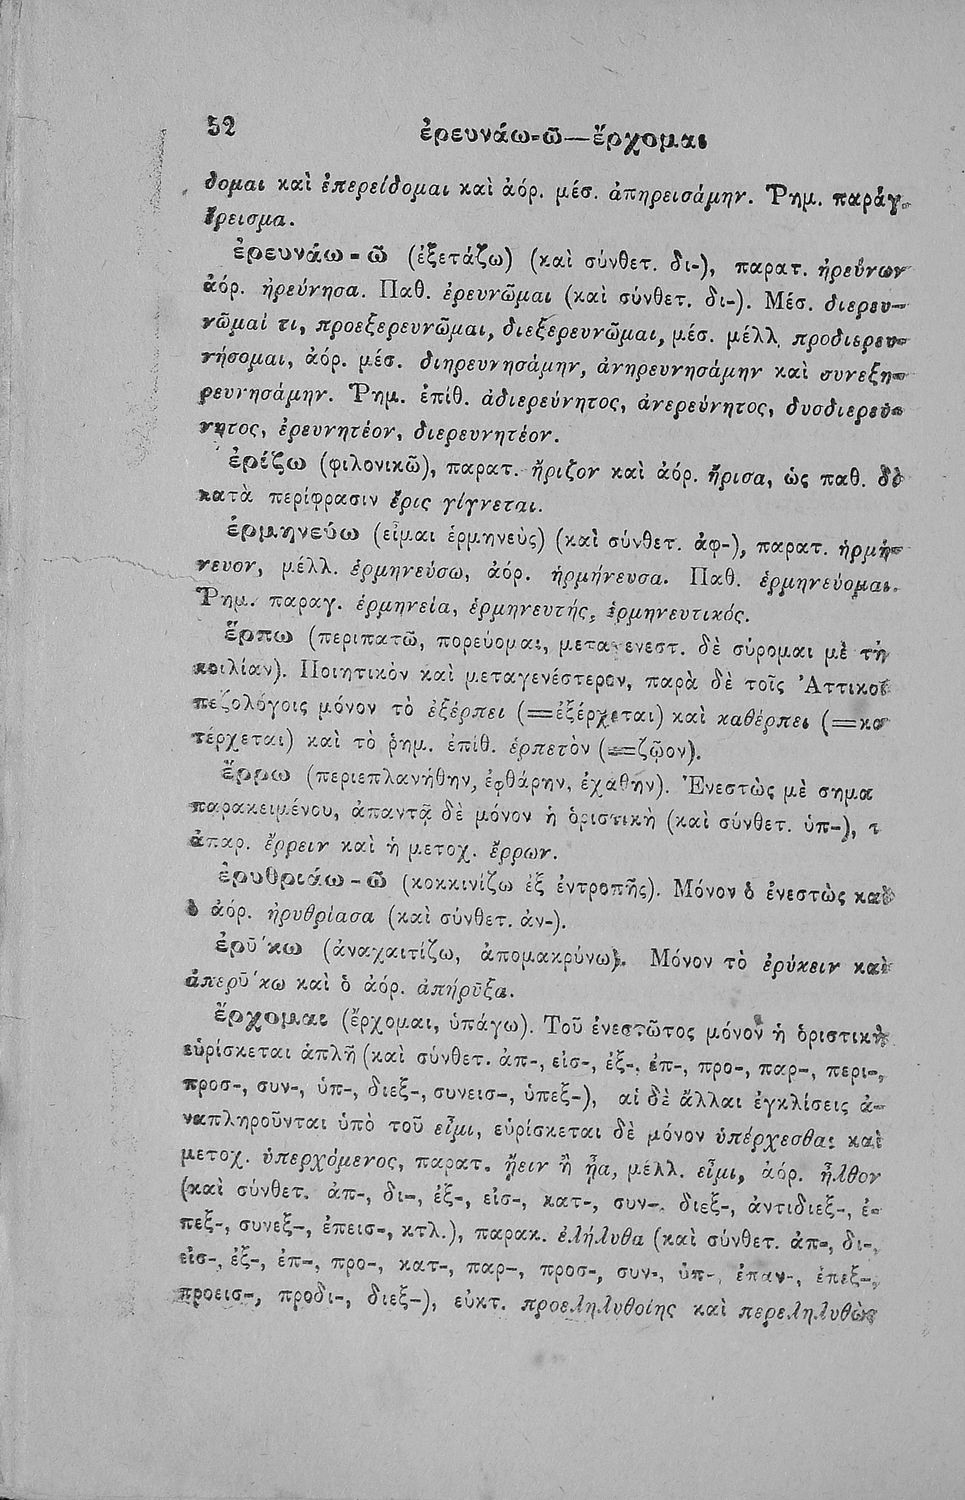 52 ἐρευνάω-ῶ—ἔρχομαι
δομαι καὶ ἐπερείδομαι καὶ ἀόρ. μέσ. ἀπηρεισάμην. Ῥημ. παράγ.
ἔρεισμα.
ἐρευνάω-ῶ (ἐξετάζω) (καὶ σύνθετ. δι-), παρατ. ἠρεύνων
ἀόρ. ἠρεύνησα. Παθ. ἐρευνῶμαι (καὶ σύνθετ. δι-). Μέσ. διερευ-
νῶμαί τι, προεξερευνῶμαι, διεξερευνῶμαι, μέσ. μέλλ. προδιερευ-
νήσομαι, ἀόρ. μέσ. διηρευνησάμην, ἀνηρευνησάμην καὶ συνεξη-
ρευνησάμην. Ῥημ. ἐπίθ. ἀδιερεύνητος, ἀνερεύνητος, δυσδιερεύ-
νητος, ἐρευνητέον, διερευνητέον.
ἐρίζω (φιλονικῶ), παρατ. ἤριζον καὶ ἀόρ. ἤρισα, ὡς παθ. δὲ
κατὰ περίφρασιν ἔρις γίγνεται.
ἑρμηνεύω (εἶμαι ἑρμηνεὺς) (καὶ σύνθετ. ἀφ-), παρατ. ἡρμή-
νευον, μέλλ. ἑρμηνεύσω, ἀόρ. ἡρμήνευσα. Παθ. ἑρμηνεύομαι.
Ῥημ. παραγ. ἑρμηνεία, ἑρμηνευτής, ἑρμηνευτικός.
ἕρπω (περιπατῶ, πορεύομαι, μεταγενεστ. δὲ σύρομαι μὲ τὴν
κοιλίαν). Ποιητικὸν καὶ μεταγενέστερον, παρὰ δὲ τοῖς Ἀττικοῖ
πεζολόγοις μόνον τὸ ἐξέρπει (=ἐξέρχεται) καὶ καθέρπει (=κα
τέρχεται) καὶ τὸ ῥημ. ἐπίθ. ἑρπετὸν (=ζῷον).
ἔρρω (περιεπλανήθην, ἐφθάρην, ἐχάθην). Ἐνεστὼς μὲ σημα
παρακειμένου, ἀπαντᾷ δὲ μόνον ἡ ὁριστικὴ (καὶ σύνθετ. ὑπ-), τ
ἀπαρ. ἔρρειν καὶ ἡ μετοχ. ἔρρων.
ἐρυθριάω-ῶ (κοκκινίζω ἐξ ἐντροπῆς). Μόνον ὁ ἐνεστὼς καὶ
ὁ ἀόρ. ἠρυθρίασα (καὶ σύνθετ. ἀν-).
ἐρῡ́κω (ἀναχαιτίζω, ἀπομακρύνω). Μόνον τὸ ἐρύκειν καὶ
ἀπερῡ́κω καὶ ὁ ἀόρ. ἀπήρῡξα.
ἔρχομαι (ἔρχομαι, ὑπάγω). Τοῦ ἐνεστῶτος μόνον ἡ ὁριστικὴ
εὑρίσκεται ἁπλῆ (καὶ σύνθετ. ἀπ-, εἰσ-, ἐξ-, ἐπ-, προ-, παρ-, περι-,
προσ-, συν-, ὑπ-, διεξ-, συνεισ-, ὑπεξ-), αἱ δὲ ἄλλαι ἐγκλίσεις ἀ-
ναπληροῦνται ὑπὸ τοῦ εἶμι, εὑρίσκεται δὲ μόνον ὑπέρχεσθαι καὶ
μετοχ. ὑπερχόμενος, παρατ. ᾔειν ἢ ᾖα, μέλλ. εἶμι, ἀόρ. ἦλθον
(καὶ σύνθετ. ἀπ-, δι-, ἐξ-, εἰσ-, κατ-, συν-, διεξ-, ἀντιδιεξ-, ἐ-
πεξ-, συνεξ-, ἐπεισ-, κτλ.), παρακ. ἐλήλυθα (καὶ σύνθετ. ἀπ-, δι-,
εἰσ-, ἐξ-, ἐπ-, προ-, κατ-, παρ-, προσ-, συν-, ὑπ-, ἐπαν-, ἐπεξ-,
προεισ-, προδι-, διεξ-), εὐκτ. προεληλυθοίης καὶ περεληλυθὼς